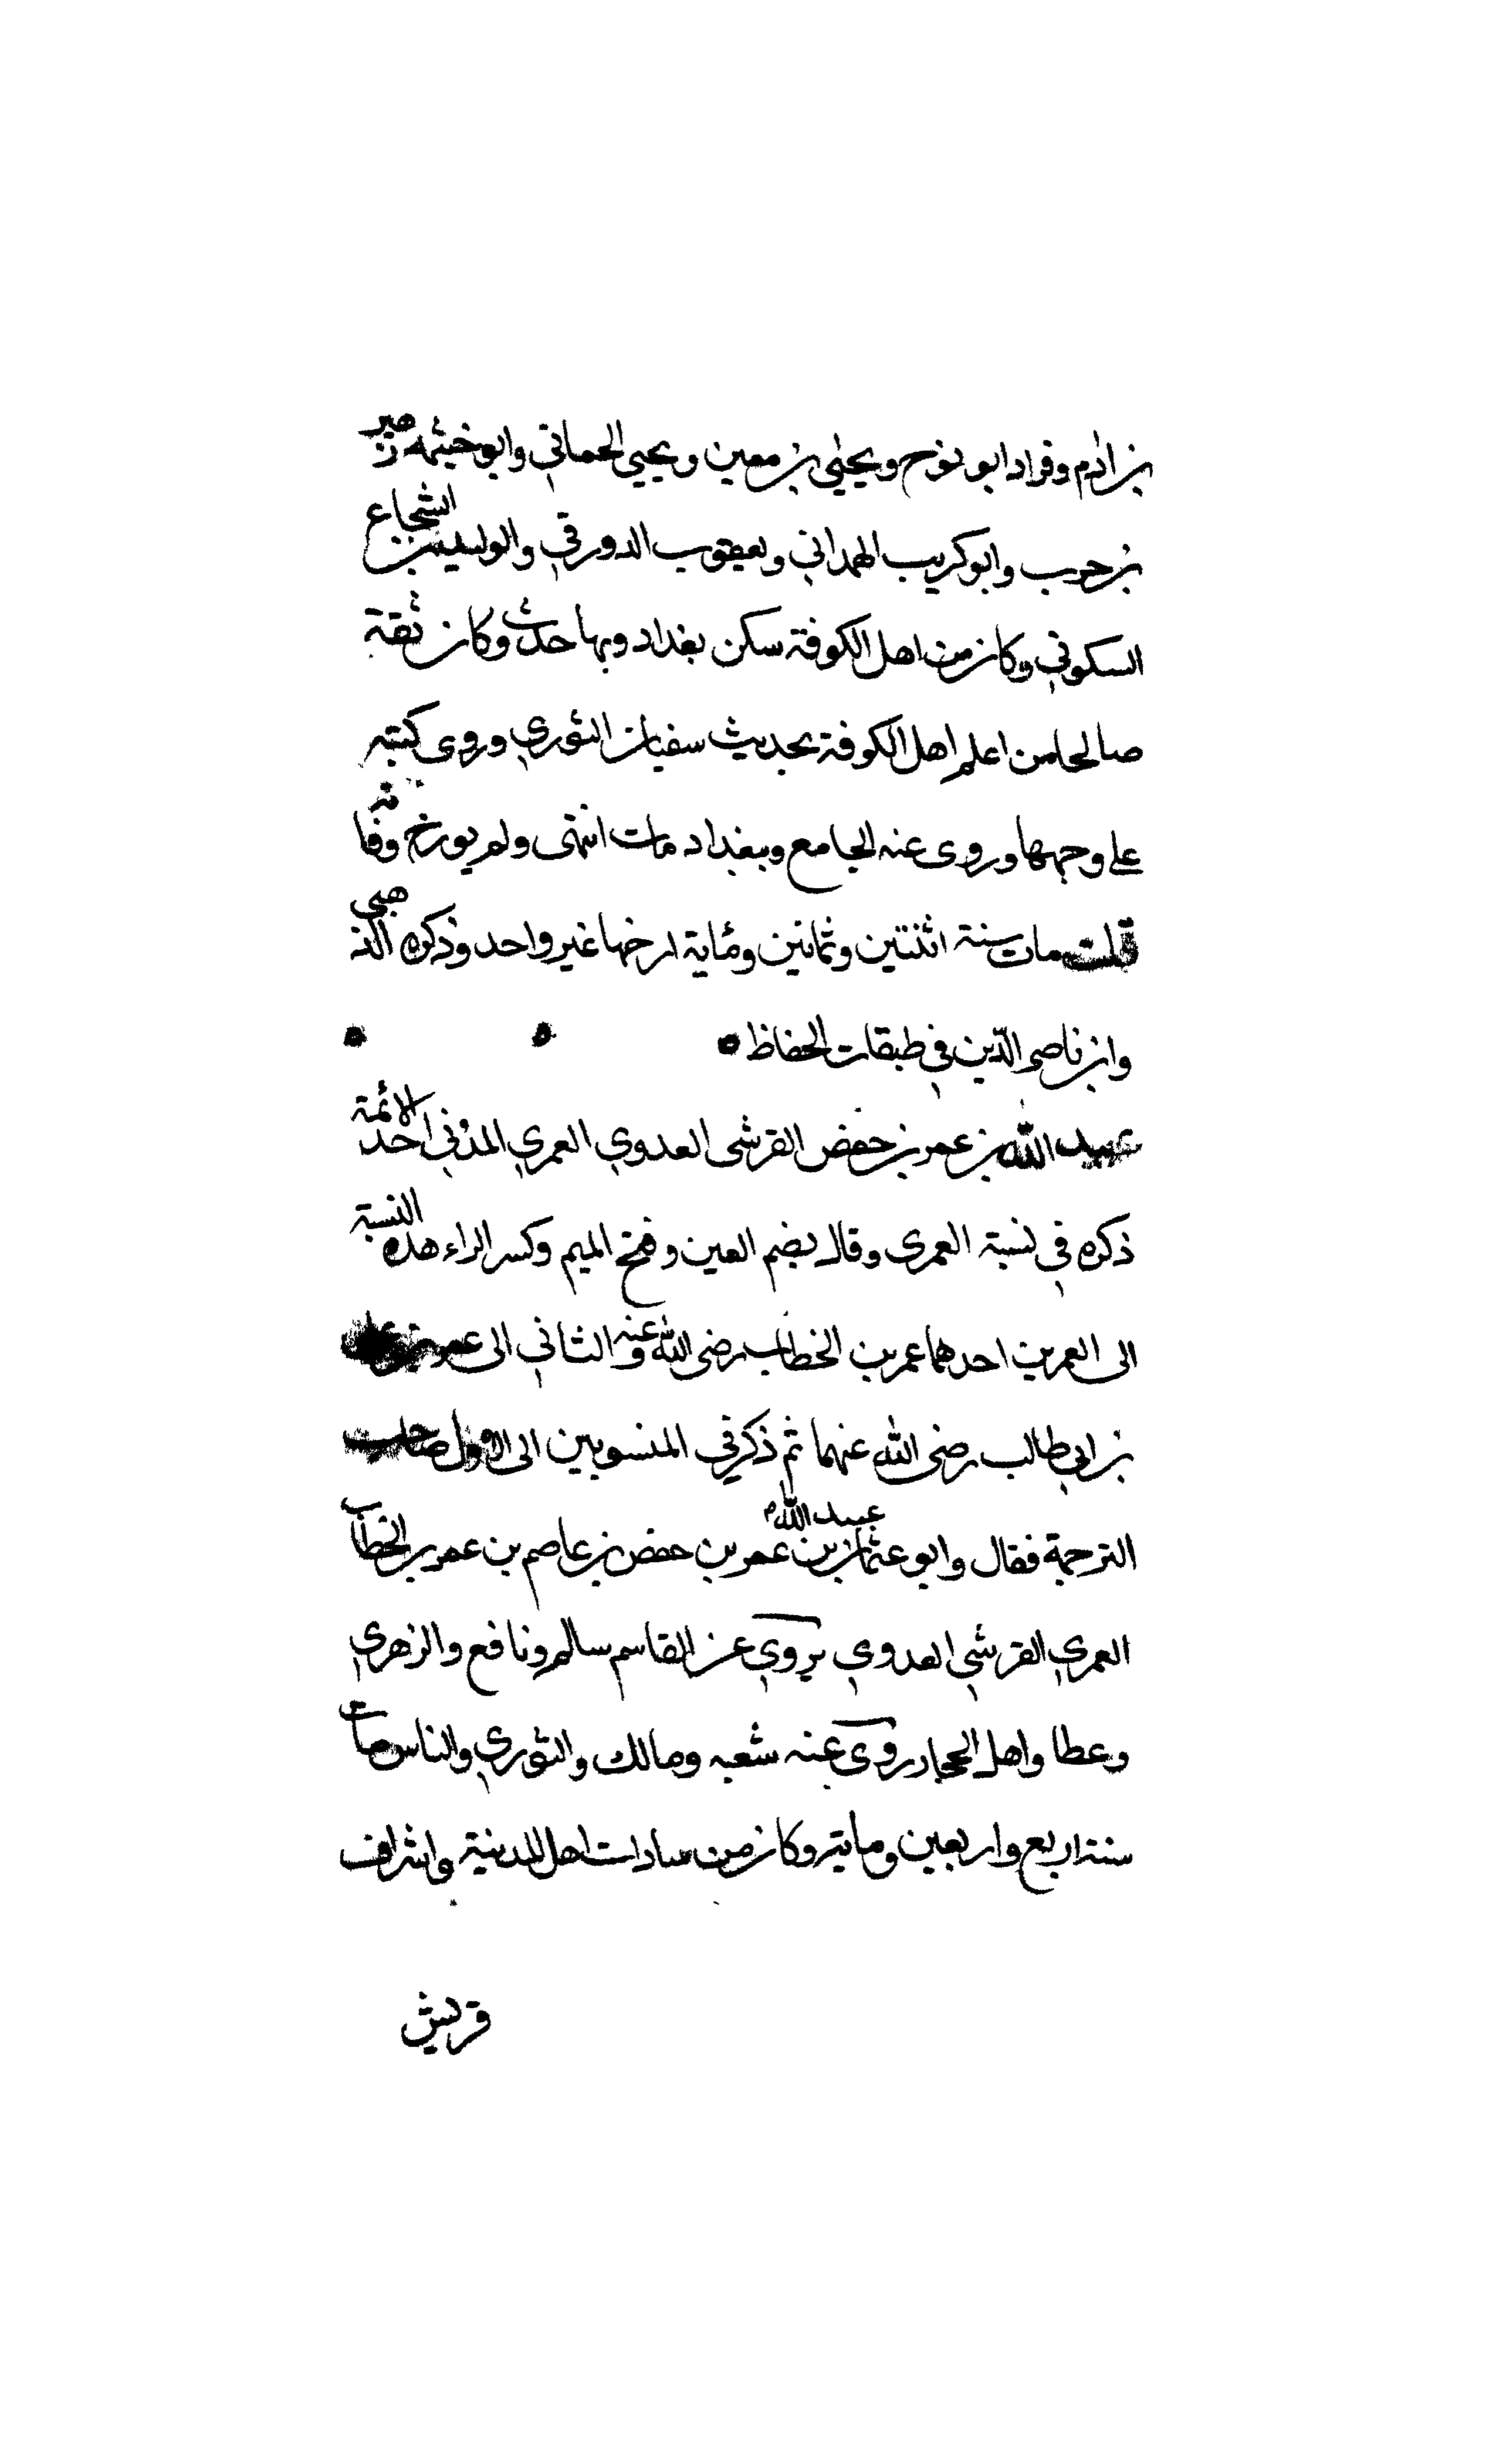 بن ادم وقراد ابو نوح ويحيى بن معين ويحيى الحماني وابو خيثمه زهير
بن حرب وابو كريب الهمداني ويعقوب الدورقي والوليد بن الشجاع
السكوني وكان من اهل الكوفة سكن بغداد وبها حدث وكان ثقة
صالحا من اعلم اهل الكوفة بحديث سفيان الثوري وروى كتبه
على وجهها وروى عنه الجامع وببغداد مات انتهى ولم يورخ وفاته
قلت مات سنة اثنتين وثمانين ومئاية ارخها غير واحد وذكره الذهبي
وابن ناصر الدين في طبقات الحفاظ
عبيد الله بن عمر بن حفص القرشى العدوي العمري المدني احد الائمة
ذكره في نسبة العمرى وقال بضم العين وفتح الميم وكسر الراء هذه النسبة
الى العمرين احدهما عمر بن الخطاب رضى الله عنه والثاني الى عمر بن على
بن ابي طالب رضى الله عنهما ثم ذكر في المنسوبين الى الاول صاحب
الترجمة فقال وابو عثمان عبيد الله بن عمر بن حفص بن عاصم بن عمر بن الخطاب
العمري القرشي العدوي يروي عن القاسم سالم ونافع والزهري
وعطا واهل الحجاز روى عنه شعبه ومالك والثوري والناس مات
سنة اربع واربعين وماية وكان من سادات اهل المدينة واشراف
قريش